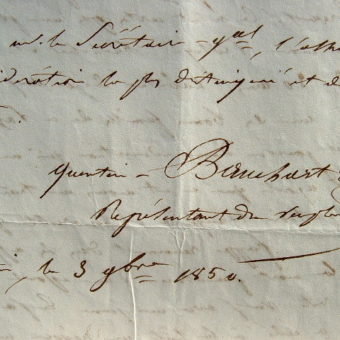 m. le Secrétaire gal, l'assu
idération la plus distinguée et d
quentin - Bauchart
Représentant du peuple
, le 3 9bre 1850.